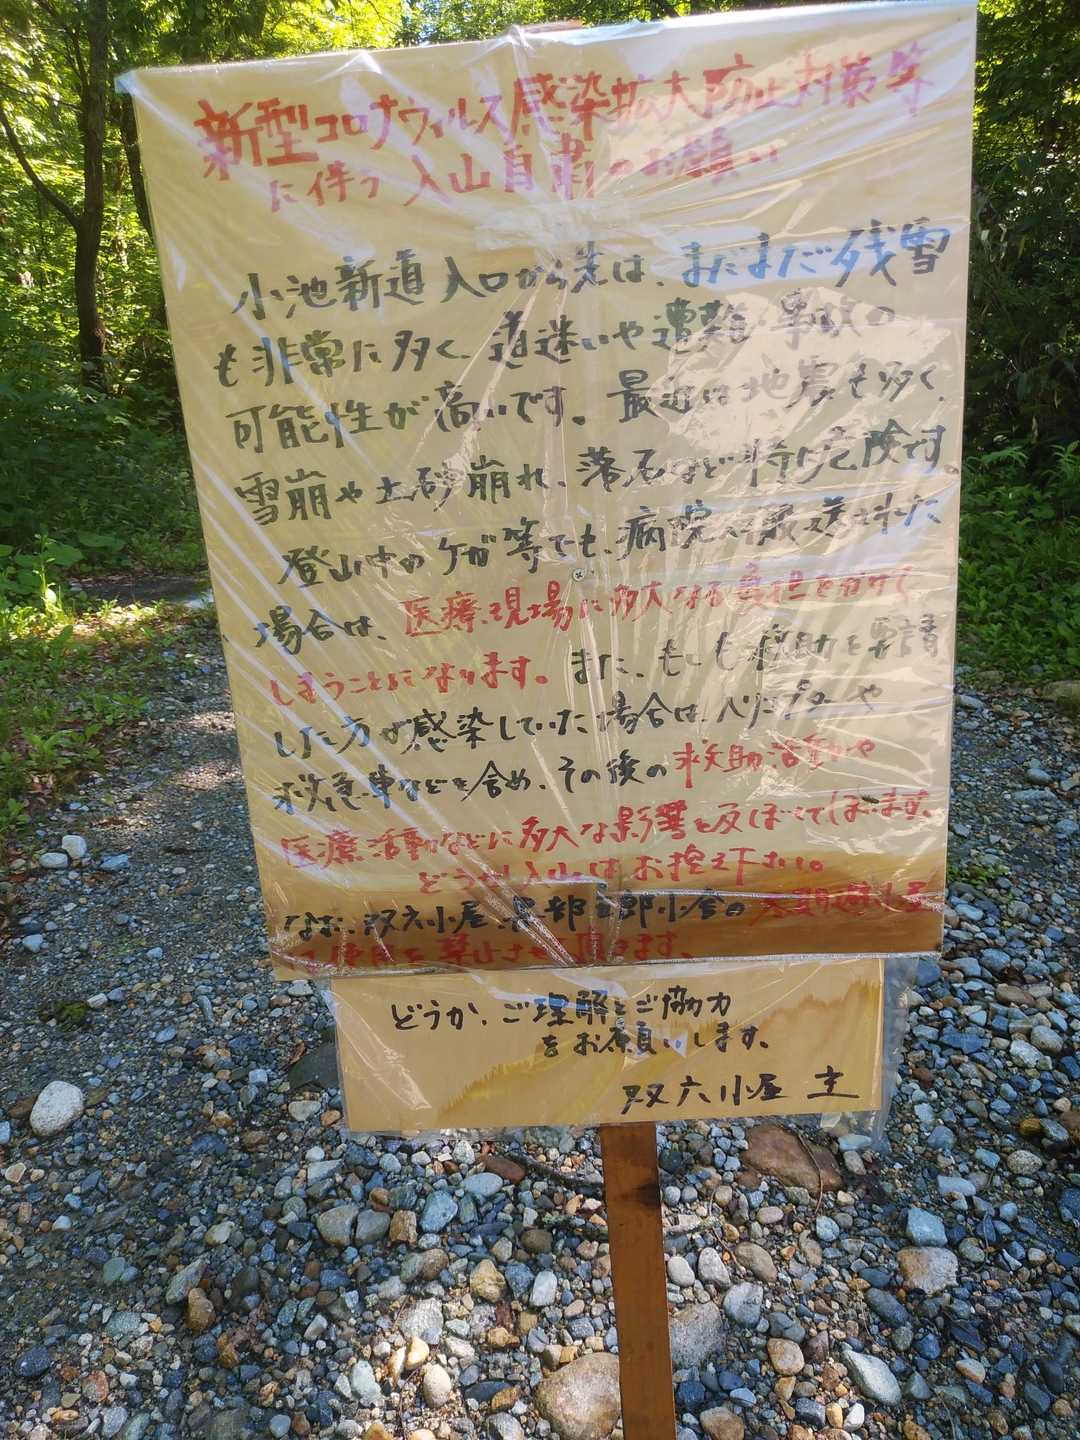 新型コロナウィルス感染拡大防止対策等
に伴う 入山自粛のお願い
小池新道入口から先は、まだまだ残雪
も非常に多く、道迷いや遭難・事故の
可能性が高いです。最近は地震も多く、
雪崩や土砂崩れ、落石など特に危険です。
登山中のケガ等でも、病院へ搬送された
場合は、医療現場に多大なる負担をかけて
しまうことになります。また、もしも救助を要請
した方が感染していた場合は、ヘリコプターや
救急車などを含め、その後の救助活動や
医療活動などに多大な影響を及ぼしてしまいます。
どうか入山はお控え下さい。
なお、双六小屋、黒部五郎小舎の冬期避難小屋
どうか、ご理解とご協力
をお願いします。
双六小屋 主